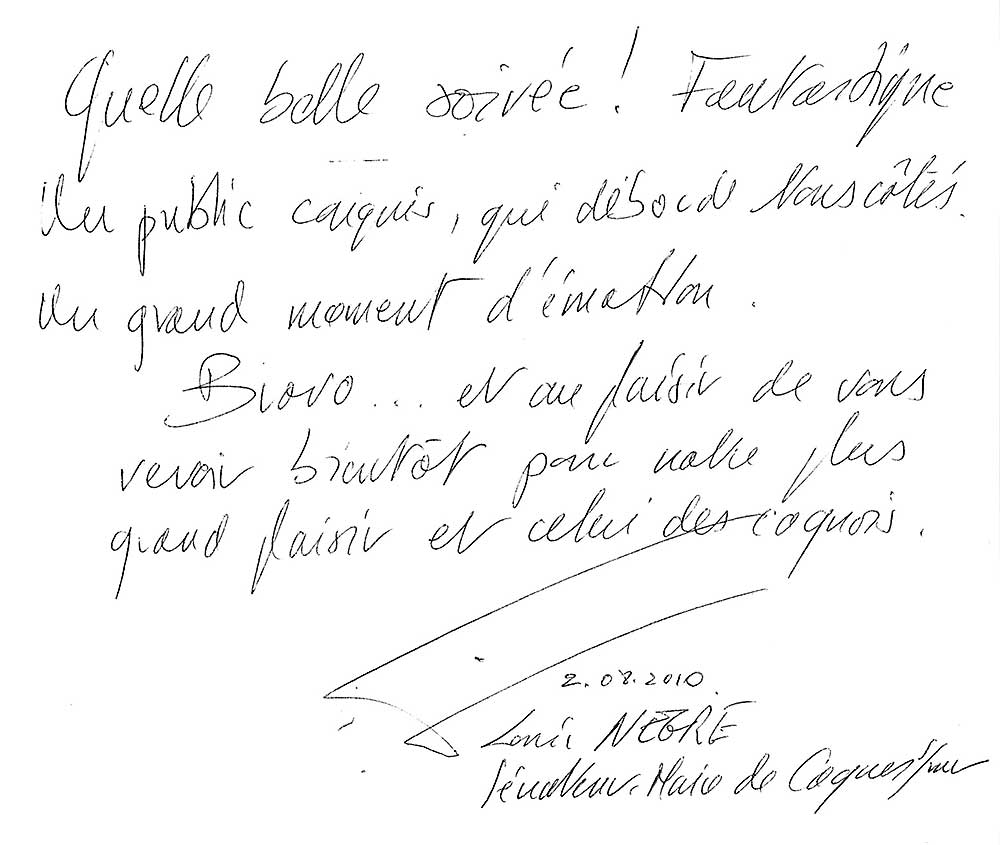 Quelle belle soirée ! Fantastique
Un public conquis, qui déborde tous côtés.
Un grand moment d'émotion.
Bravo... et au plaisir de vous
revoir bientôt pour notre plus
grand plaisir et celui des cagnois.
2.08.2010.
Louis NEGRE
Sénateur-Maire de Cagnes s/mer